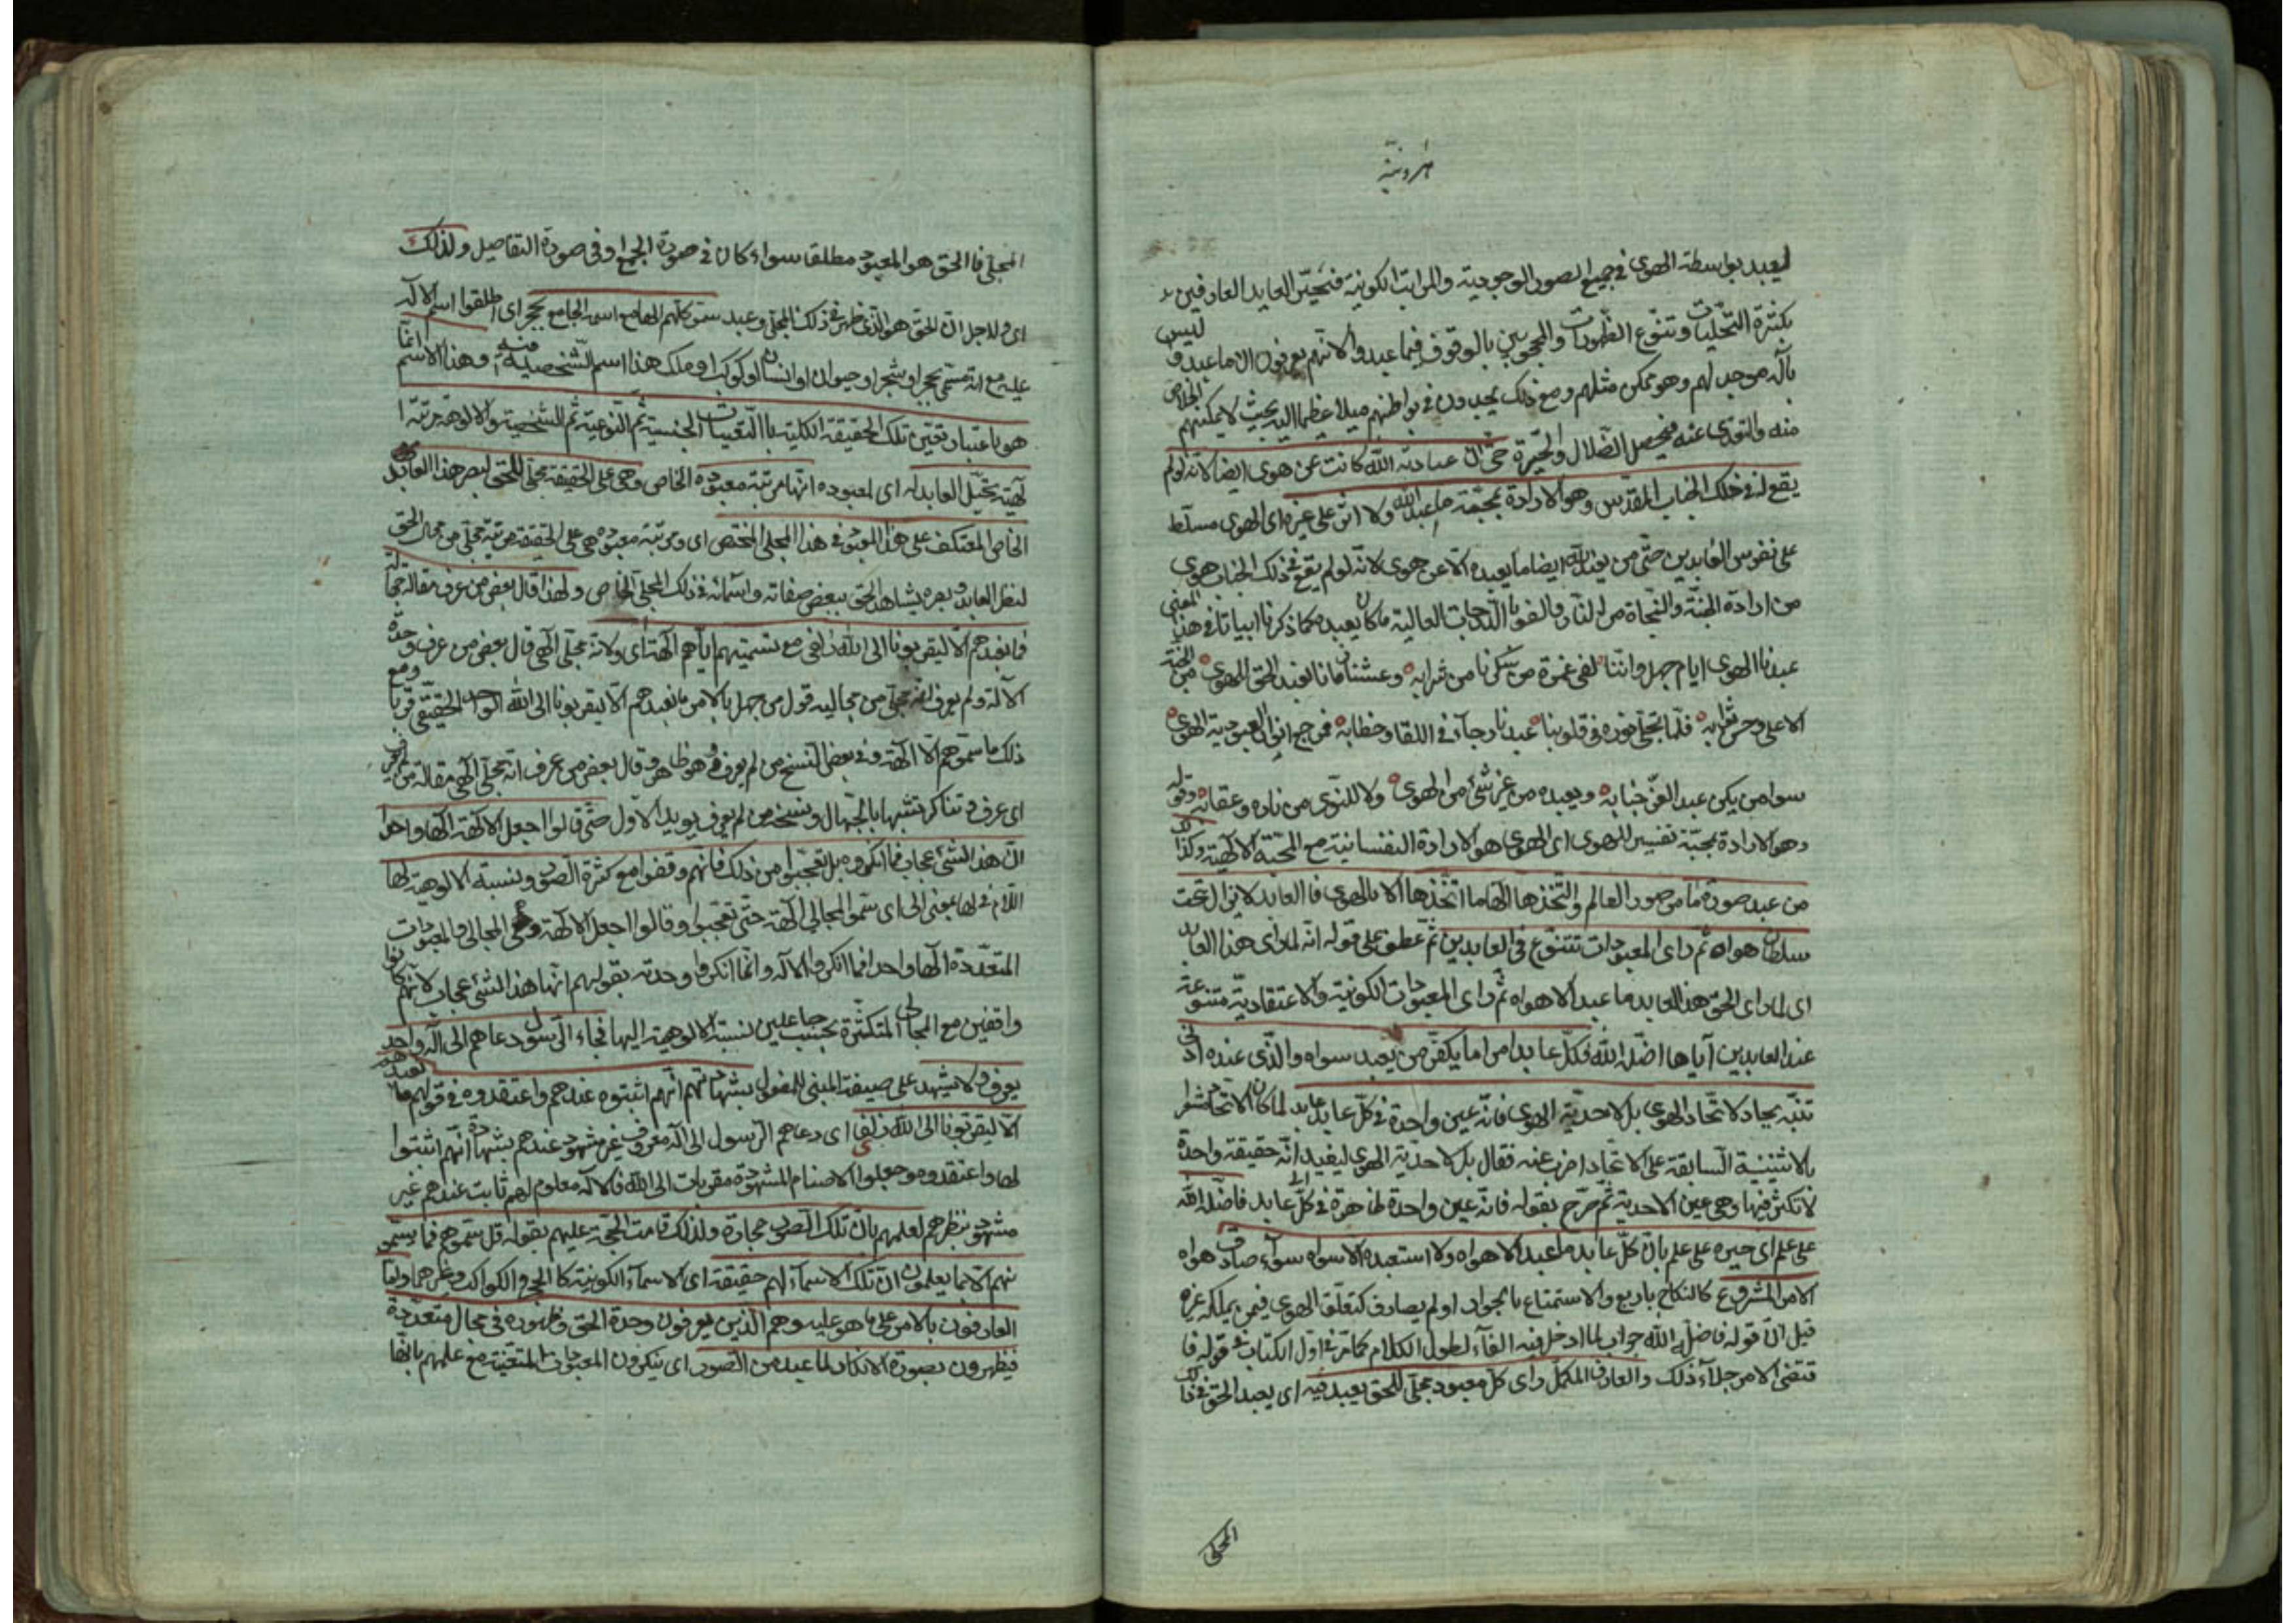 هرونية
ليعبد بواسطة الهوى في جميع الصور الوجودية والمراتب الكونية فتحير العابد العارفين
بكثرة التجليات وتنوع الظهورات والمحجوبين بالوقوف فيما عبدوا لانهم يعرفون ان ما عبدوه ليس
بآله موجد لهم وهو ممكن مثلهم ومع ذلك يجدون في بواطنهم ميلا عظيما اليه بحيث لا يمكنهم الخلاص
منه والتعدى عنه فيحصل الضلال والحيرة حتى ان عبادته الله كانت عن هوى ايضا لانه لو لم
يقع له في ذلك الجناب المقدس وهو الارادة بمحبة ما عبد الله ولا اثره على غيره اى الهوى مسلط
على نفوس العابدين حتى من يعبد الله ايضا ما يعبده الا عن هوى لانه لو لم يقع في ذلك الجناب هوى
من ارادة الجنة والنجاة من النار والفوز بالدرجات العالية ما كان يعبد كما ذكرنا ابياتا في هذا المعنى
عبدنا الهوى ايام جهل واننا لفى غمرة من سكرنا من شرابه وعشنا زمانا نعبد الحق للهوى من الجنة
الاعلى وحسن ثوابه فلما تجلى نوره في قلوبنا عبدنا رجآء في اللقا وخطابه فمرجع انواع العبودية الهوى
سوا من يكن عبد العز جنابه ويعبده من غير شئ من الهوى ولا للنوى من ناره وعقابه وقوله
وهو الارادة بمحبة تفسير للهوى اى الهوى هو الارادة النفسانية مع المحبة الالهية وكذلك
من عبد صورة ما من صور العالم واتخذها الها ما اتخذها الا بالهوى فالعابد لا يزال تحت
سلطان هواه ثم راى المعبودات تتنوع في العابدين ثم عطف على قوله انه لما راى هذا العابد
اى لما راى الحق هذا العابد ما عبد الا هواه ثم راى المعبودات الكونية والاعتقادية متنوعة
عند العابدين آياها اضله الله فكل عابد امرا ما يكفر من يعبد سواه والذى عنده ادنى
تنبه يحار لاتحاد الهوى بل لاحدية الهوى فانه عين واحدة في كل عابد لما كان الاتحاد مشعرا
بالاثنينية السابقة على الاتحاد اضرب عنه فقال بل لاحدية الهوى ليفيد انه حقيقة واحدة
لا تكثر فيها وهى عين الاحدية ثم صرح بقوله فانه عين واحدة ظاهرة في كل عابد فاضله الله
على علم اى حيره على علم بان كل عابد ما عبد الا هواه ولا استعبده الا سواه سوآء صادف هواه
الامر المشروع كالنكاح باربع والاستمتاع بالجوار او لم يصادف كتعلق الهوى فيمن يملكه غيره
قيل ان قوله فاضله الله جواب لما ادخل فيه الفآء لطول الكلام كما مر في اول الكتاب في قوله فا
قتضى الامر جلآء ذلك والعارف المكمل راى كل معبود مجلى للحق يعبد فيه اى يعبد الحق في ذلك
المجلى
المجلى فالحق هو المعبود مطلقا سواء كان في صورة الجمع او في صورة التفاصيل ولذلك
اى ولاجل ان الحق هو الذى ظهر في ذلك المجلى وعبد سموه كلهم الها مع اسمه الجامع بحجر اى اطلقوا اسم الاله
عليه مع انه مسمى بحجر او شجر او حيوان او انسان او كوكب او ملك هذا اسم الشخصية فيه وهذا الاسم انما
هو باعتبار تعين تلك الحقيقة الكلية بالتعينات الجنسية ثم النوعية ثم الشخصية والالوهة مرتبة ا
لهية تخيل العابد له اى لمعبوده انها مرتبة معبوده الخاص وهى على الحقيقة مجلى للحق لبصر هذا العابد
الخاص المعتكف على هذا المعبود في هذا المجلى المختص اى ومرتبة معبوده هى على الحقيقة مرتبة مجلى من مجال الحق
لنظر العابد وبصره يشاهد الحق ببعض صفاته واسمائه في ذلك المجلى الخاص ولهذا قال بعض من عرف مقالة جهالة
ما نعبدهم الا ليقربونا الى الله زلفى مع تسميتهم اياهم آلهة اى ولانه مجلى الهى قال بعض من عرف وحدة
الاله ولم يعرف انه مجلى من مجاليه قول من جهل بالامر ما نعبدهم الا ليقربونا الى الله الواحد الحقيقى قربا ومع
ذلك ما سموهم الا الهة وفي بعض النسخ من لم يعرف فهو ظاهر قال بعض من عرف انه مجلى الهى مقالة من لم يعرف
اى عرف وتناكر تشبها بالجهال ونسخة من لم يعرف يؤيد الاول حتى قالوا اجعل الالهة الها واحدا
ان هذا لشئ عجاب فما انكروه بل تعجبوا من ذلك فانهم وقفوا مع كثرة الصور ونسبة الالوهة لها
اللام في لها بمعنى الى اى سموا المجالى الهة حتى تعجبوا وقالوا اجعل الالهة وهى المجالى والمعبودات
المتعددة الها واحدا فما انكروا الاله وانما انكروا وحدته بقولهم ان هذا لشئ عجاب لانهم كانوا
واقفين مع المجالى المتكثرة جاعلين نسبة الالوهية اليها فجاء الرسول ودعاهم الى اله واحد
يعرف ولا يشهد على صيغة المبنى للمفعول بشهادتهم انهم اثبتوه عندهم واعتقدوه في قولهم ما نعبدهم
الا ليقربونا الى الله زلفى اى دعاهم الرسول الى اله معروف غير مشهود عندهم بشهادة انهم اثبتوا
لها واعتقدوه وجعلوا الاصنام المشهودة مقربات الى الله فالاله معلوم لهم ثابت عندهم غير
مشهود بنظرهم لعلمهم بان تلك الصور حجارة ولذلك قامت الحجة عليهم بقوله قل سموهم فما يسمو
نهم الا بما يعلمون ان تلك الاسمآء لهم حقيقة اى الاسمآء الكونية كالحجر والكواكب وغيرهما واما
العارفون بالامر على ما هو عليه وهم الذين يعرفون وحدة الحق وظهوره في مجال متعددة
فيظهرون بصورة الانكار لما عبد من الصور اى ينكرون المعبودات المتعينة مع علمهم بانها